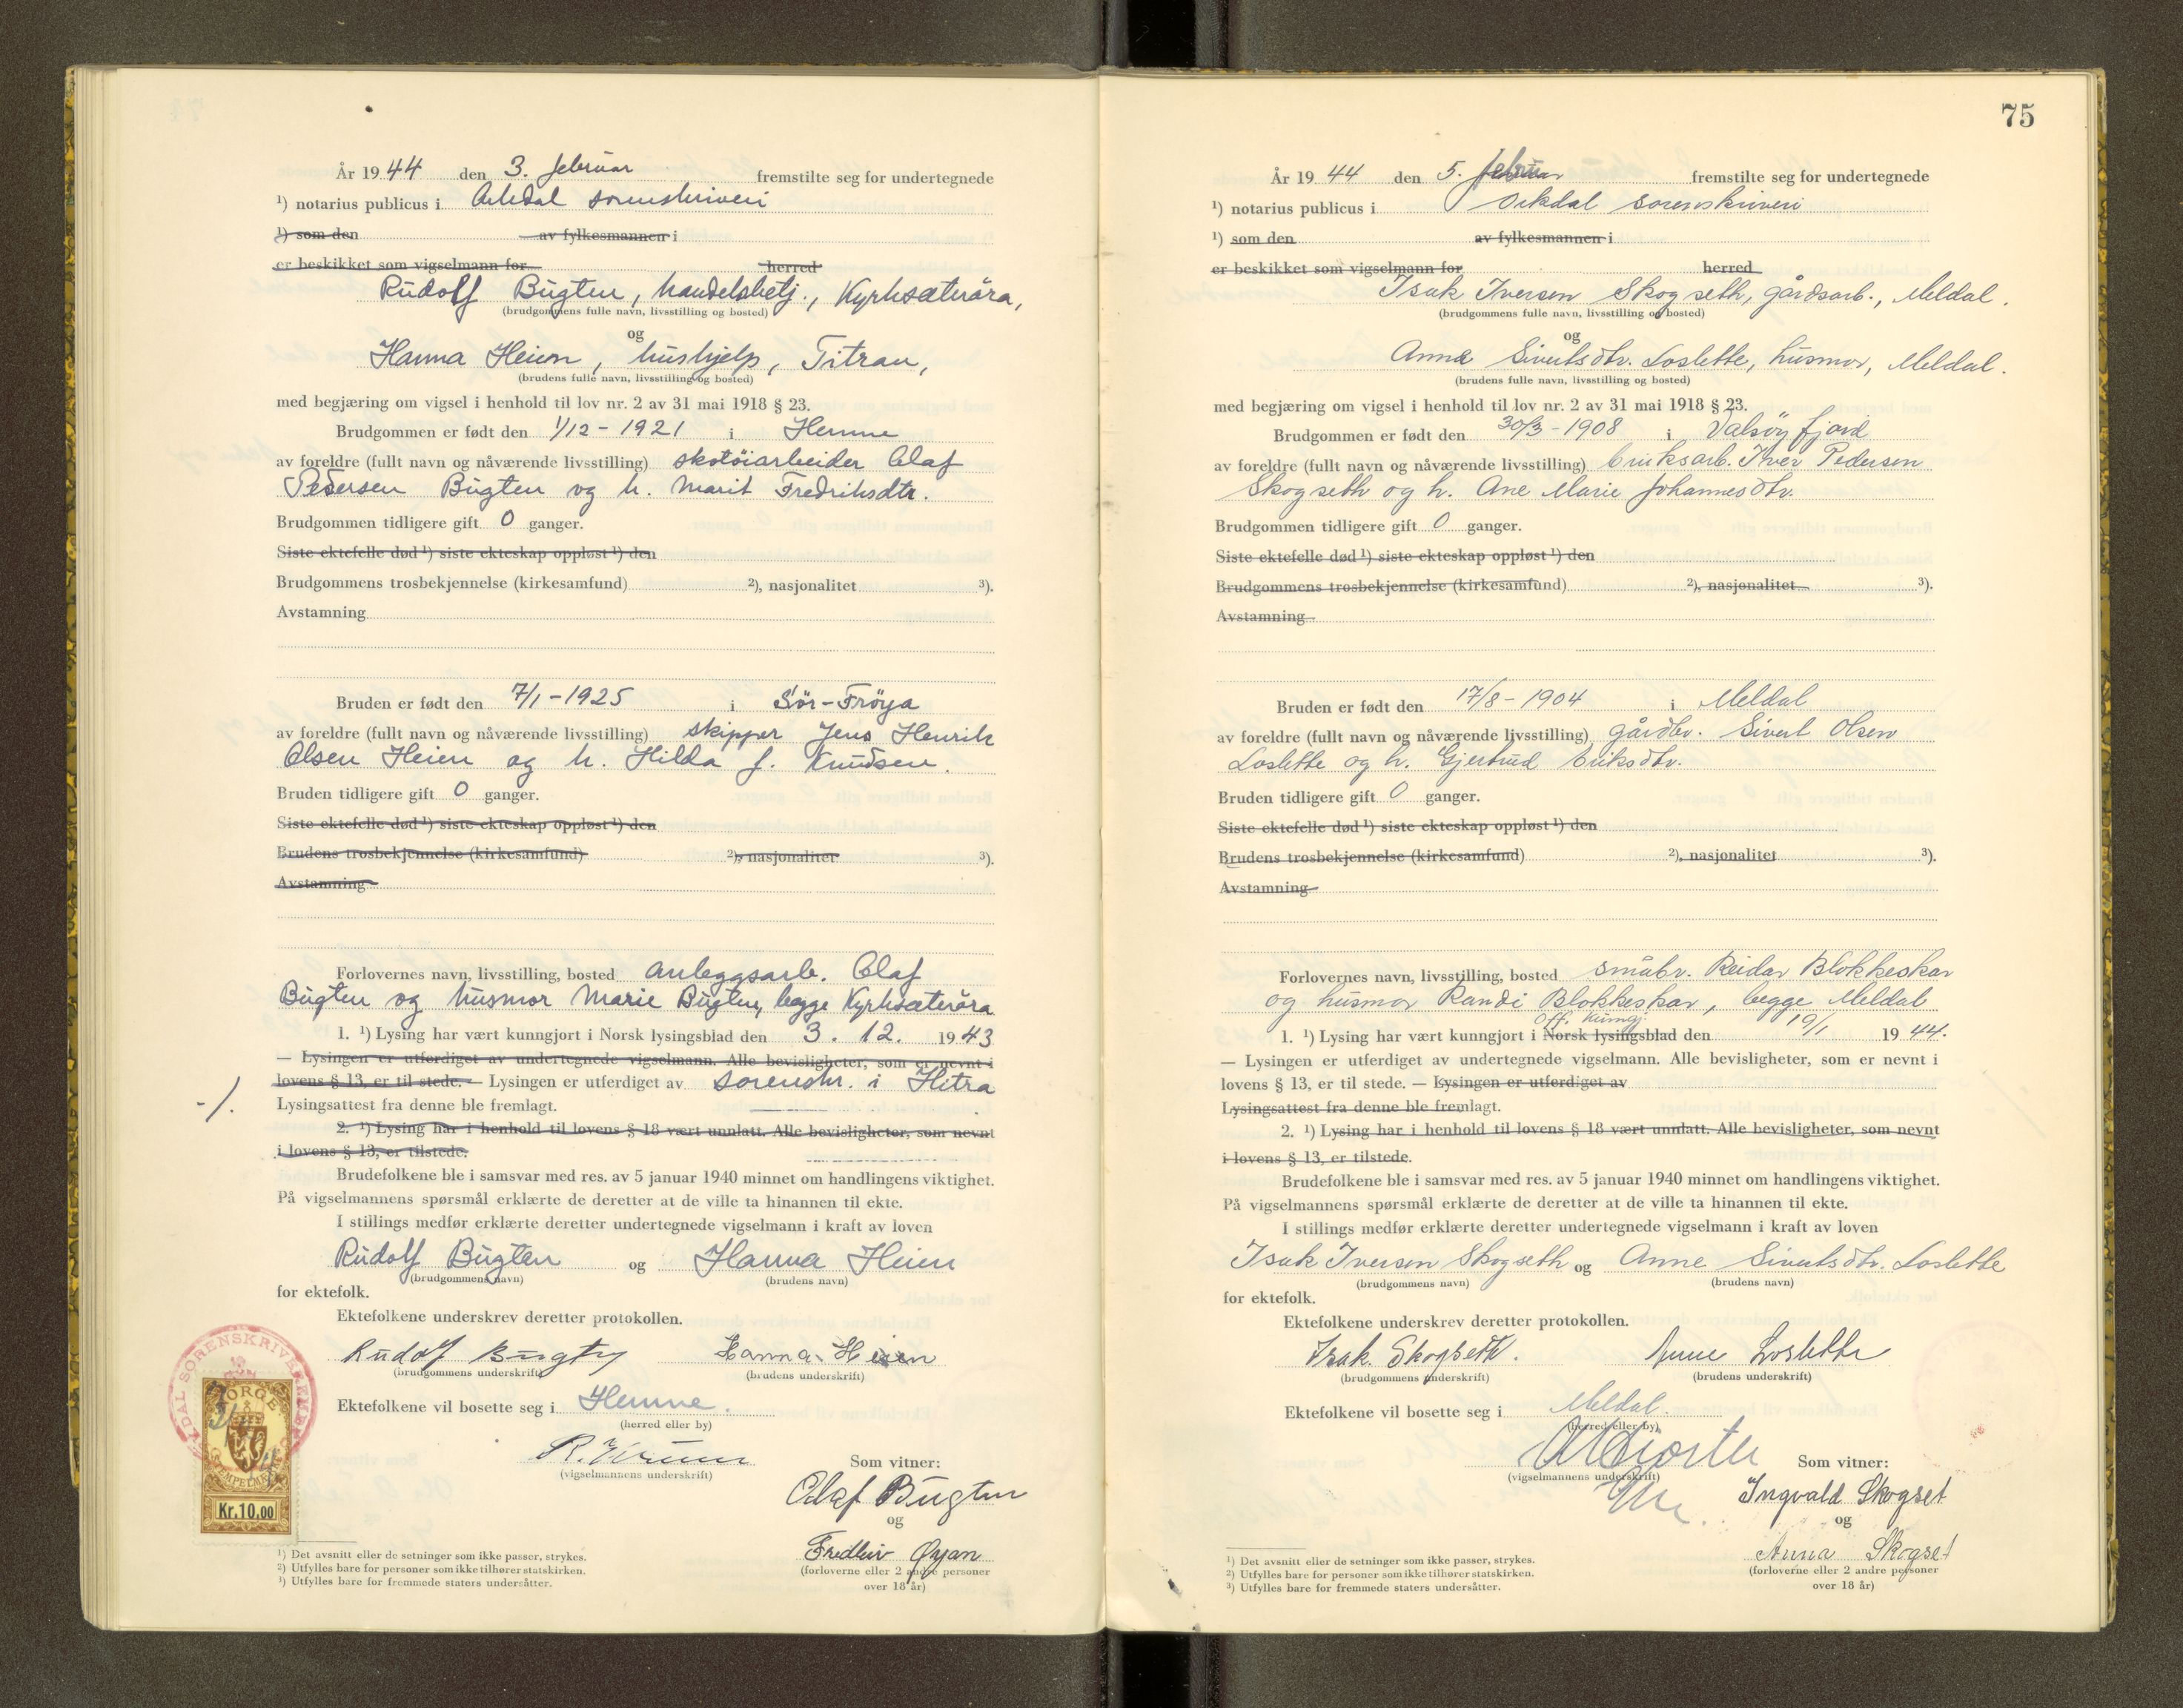 År 1944 den 3. februar fremstilte seg for undertegnede
¹) notarius publicus i Orkdal sorenskriveri
¹) som den av fylkesmannen i
er beskikket som vigselmann for herred
Rudolf Bugten, handelsbetj., Kyrksæterøra,
(brudgommens fulle navn, livsstilling og bosted)
og
Hanna Heien, hushjelp, Titran,
(brudens fulle navn, livsstilling og bosted)
med begjæring om vigsel i henhold til lov nr. 2 av 31 mai 1918 § 23.
Brudgommen er født den 1/12 - 1921 i Hemne
av foreldre (fullt navn og nåværende livsstilling) skotöiarbeider Olaf
Pedersen Bugten og h. Marit Fredriksdtr.
Brudgommen tidligere gift 0 ganger.
Siste ektefelle død ¹) siste ekteskap oppløst ¹) den
Brudgommens trosbekjennelse (kirkesamfund) ²), nasjonalitet ³).
Avstamning
Bruden er født den 7/1 - 1925 i Sör-Fröya
av foreldre (fullt navn og nåværende livsstilling) skipper Jens Henrik
Olsen Heien og h. Hilda f. Knudsen.
Bruden tidligere gift 0 ganger.
Siste ektefelle død ¹) siste ekteskap oppløst ¹) den
Brudens trosbekjennelse (kirkesamfund) ²), nasjonalitet ³).
Avstamning
Forlovernes navn, livsstilling, bosted anleggsarb. Olaf
Bugten og husmor Marie Bugten, begge Kyrksæteröra
1. ¹) Lysing har vært kunngjort i Norsk lysingsblad den 3. 12. 1943
— Lysingen er utferdiget av undertegnede vigselmann. Alle bevisligheter, som er nevnt i
lovens § 13, er til stede. — Lysingen er utferdiget av sorenskr. i Hitra
-/.
Lysingsattest fra denne ble fremlagt.
2. ¹) Lysing har i henhold til lovens § 18 vært unnlatt. Alle bevisligheter, som nevnt
i lovens § 13, er tilstede.
Brudefolkene ble i samsvar med res. av 5 januar 1940 minnet om handlingens viktighet.
På vigselmannens spørsmål erklærte de deretter at de ville ta hinannen til ekte.
I stillings medfør erklærte deretter undertegnede vigselmann i kraft av loven
Rudolf Bugten og Hanna Heien
(brudgommens navn) (brudens navn)
for ektefolk.
Ektefolkene underskrev deretter protokollen.
Rudolf Bugten Hanna Heien
(brudgommens underskrift) (brudens underskrift)
Ektefolkene vil bosette seg i Hemne.
(herred eller by)
(vigselmannens underskrift)
Som vitner:
Olaf Bugten
og
Fredleiv Øyan
(forloverne eller 2 andre personer
over 18 år)
DAL SORENSKRIVER
NORGE
STEMPELMERKE
Kr.10.00
¹) Det avsnitt eller de setninger som ikke passer, strykes.
²) Utfylles bare for personer som ikke tilhører statskirken.
³) Utfylles bare for fremmede staters undersåtter.
75
År 1944 den 5. februar fremstilte seg for undertegnede
¹) notarius publicus i Orkdal sorenskriveri
¹) som den av fylkesmannen i
er beskikket som vigselmann for herred
Isak Iversen Skogseth, gårdsarb., Meldal.
(brudgommens fulle navn, livsstilling og bosted)
og
Anne Sivertsdtr. Loslette, husmor, Meldal.
(brudens fulle navn, livsstilling og bosted)
med begjæring om vigsel i henhold til lov nr. 2 av 31 mai 1918 § 23.
Brudgommen er født den 30/3 - 1908 i Valsöyfjord
av foreldre (fullt navn og nåværende livsstilling) bruksarb. Iver Pedersen
Skogseth og h. Ane Marie Johannesdtr.
Brudgommen tidligere gift 0 ganger.
Siste ektefelle død ¹) siste ekteskap oppløst ¹) den
Brudgommens trosbekjennelse (kirkesamfund) ²), nasjonalitet ³).
Avstamning
Bruden er født den 17/8 - 1904 i Meldal
av foreldre (fullt navn og nåværende livsstilling) gårdbr. Sivert Olsen
Loslette og h. Gjertrud Eriksdtr.
Bruden tidligere gift 0 ganger.
Siste ektefelle død ¹) siste ekteskap oppløst ¹) den
Brudens trosbekjennelse (kirkesamfund) ²), nasjonalitet ³).
Avstamning
Forlovernes navn, livsstilling, bosted småbr. Reidar Blokkeskar
og husmor Randi Blokkeskar, begge Meldal
off. kunngj.
1. ¹) Lysing har vært kunngjort i Norsk lysingsblad den 19/1 1944.
— Lysingen er utferdiget av undertegnede vigselmann. Alle bevisligheter, som er nevnt i
lovens § 13, er til stede. — Lysingen er utferdiget av
Lysingsattest fra denne ble fremlagt.
2. ¹) Lysing har i henhold til lovens § 18 vært unnlatt. Alle bevisligheter, som nevnt
i lovens § 13, er tilstede.
Brudefolkene ble i samsvar med res. av 5 januar 1940 minnet om handlingens viktighet.
På vigselmannens spørsmål erklærte de deretter at de ville ta hinannen til ekte.
I stillings medfør erklærte deretter undertegnede vigselmann i kraft av loven
Isak Iversen Skogseth og Anne Sivertsdtr. Loslette
(brudgommens navn) (brudens navn)
for ektefolk.
Ektefolkene underskrev deretter protokollen.
Isak Skogseth. Anne Loslette
(brudgommens underskrift) (brudens underskrift)
Ektefolkene vil bosette seg i Meldal.
(herred eller by)
(vigselmannens underskrift)
Som vitner:
Ingvald Skogset
og
Anna Skogset
(forloverne eller 2 andre personer
over 18 år)
¹) Det avsnitt eller de setninger som ikke passer, strykes.
²) Utfylles bare for personer som ikke tilhører statskirken.
³) Utfylles bare for fremmede staters undersåtter.